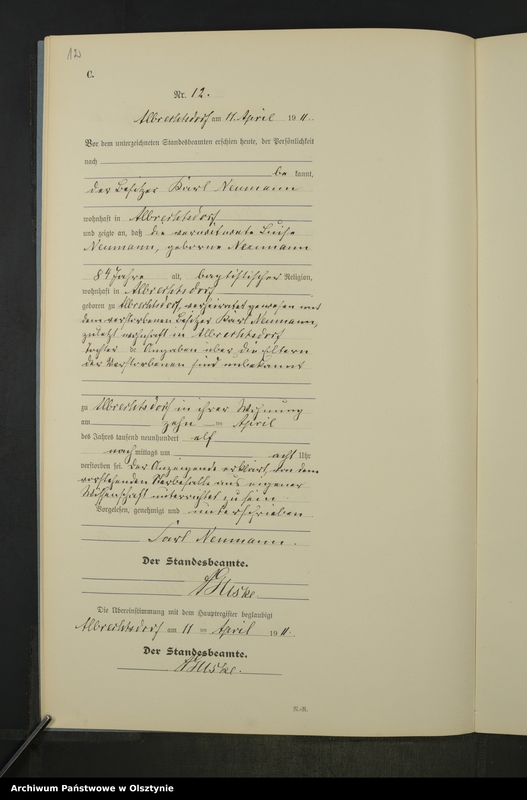 12
C.
Nr. 12.
Albrechtsdorf am 11. April 1911.
Vor dem unterzeichneten Standesbeamten erschien heute, der Persönlichkeit
nach
be kannt,
der Besitzer Karl Neumann
wohnhaft in Albrechtsdorf
und zeigte an, daß die verwitwete Luise
Neumann, geborne Neumann
84 Jahre alt, baptistischer Religion,
wohnhaft in Albrechtsdorf
geboren zu Albrechtsdorf, verheiratet gewesen mit
dem verstorbenen Besitzer Karl Neumann,
zuletzt wohnhaft in Albrechtsdorf
Tochter de Angaben über die Eltern
der Verstorbenen sind unbekannt
zu Albrechtsdorf in ihrer Wohnung
am zehn ten April
des Jahres tausend neunhundert elf
nach mittags um acht Uhr
verstorben sei. Der Anzeigende erklärt, von dem
vorstehenden Sterbefalle aus eigener
Wissenschaft unterrichtet zu sein.
Vorgelesen, genehmigt und unterschrieben
Karl Neumann.
Der Standesbeamte.
Die Übereinstimmung mit dem Hauptregister beglaubigt
Albrechtsdorf am 11 ten April 1911.
Der Standesbeamte.
Archiwum Państwowe w Olsztynie